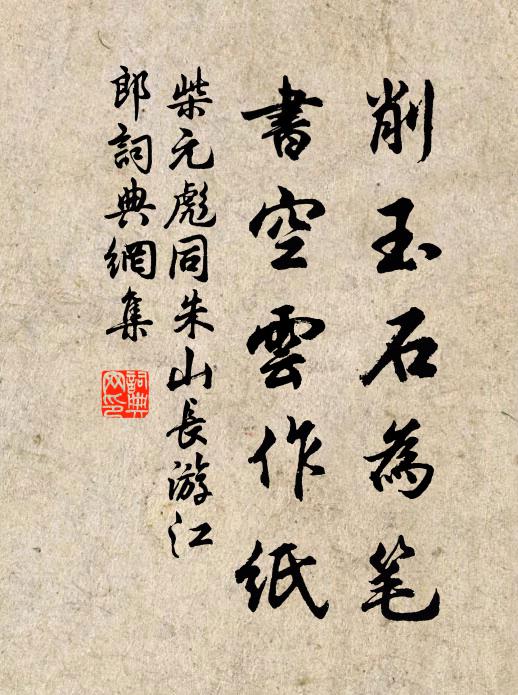 削玉石為笔
書空雲作紙
柴元彪同朱山長游江
郎詞典網集
詞典
网印